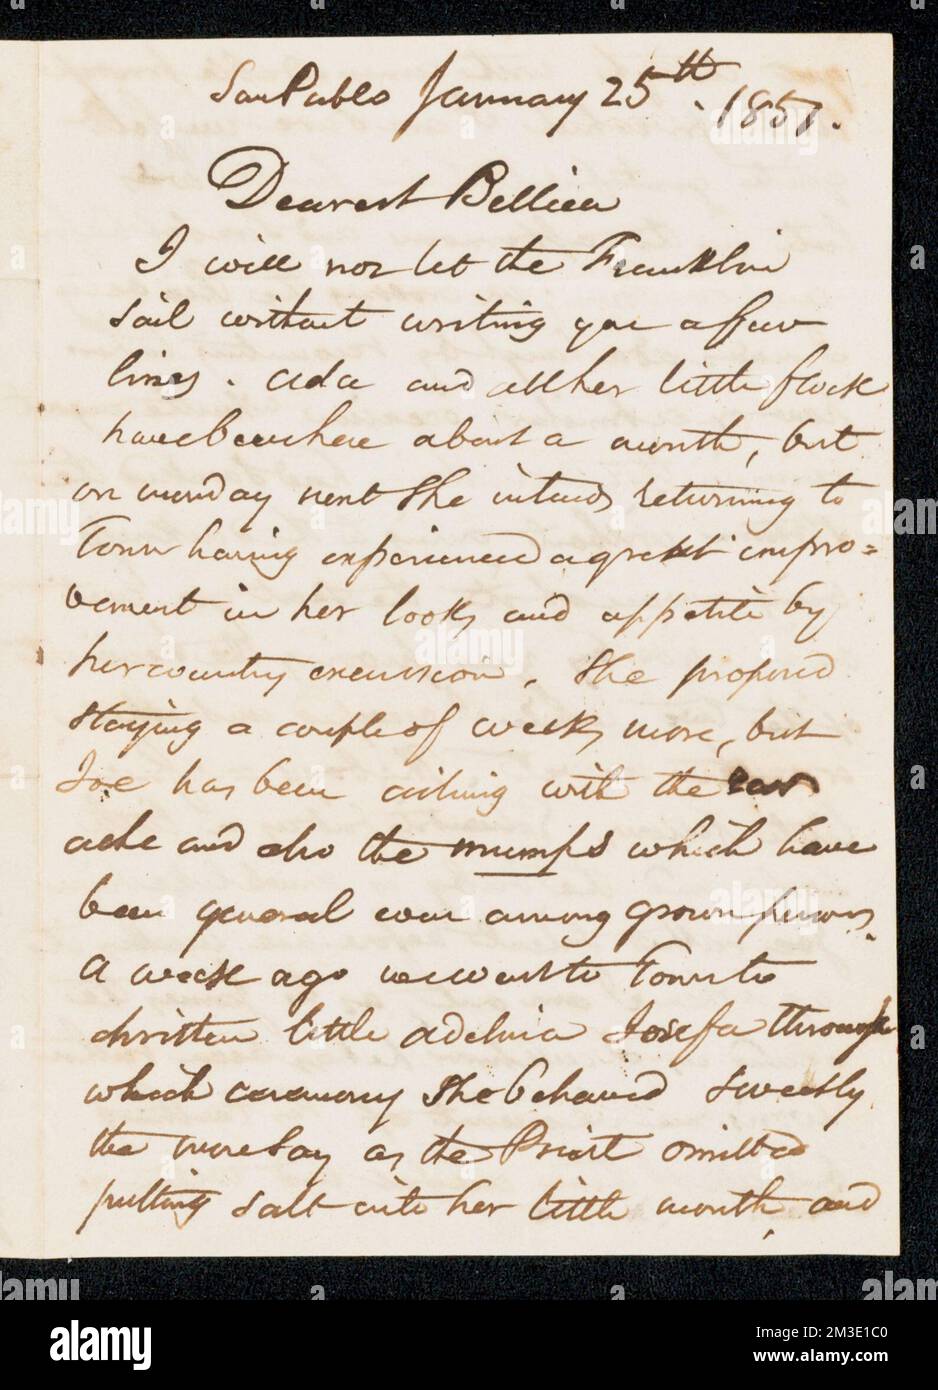 San Pablo January 25th. 1857.
Dearest Bellica
I will not let the Franklin
sail without writing you a few
lines. Ada and all her little flock
have been here about a month, but
on monday next she intends returning to
Town having experienced a great impro=
vement in her looks and appetite by
her country excursion. She proposed
staying a couple of weeks more, but
Joe has been ailing with the ear
ache and also the mumps which have
been general even among grown persons.
A week ago we went to Town to
christen little Adelina Josefa through
which ceremony she behaved sweetly
the more say as the Priest omitted
putting salt into her little mouth, and
alamy
alamy
Image ID: 2M3E1C0
www.alamy.com